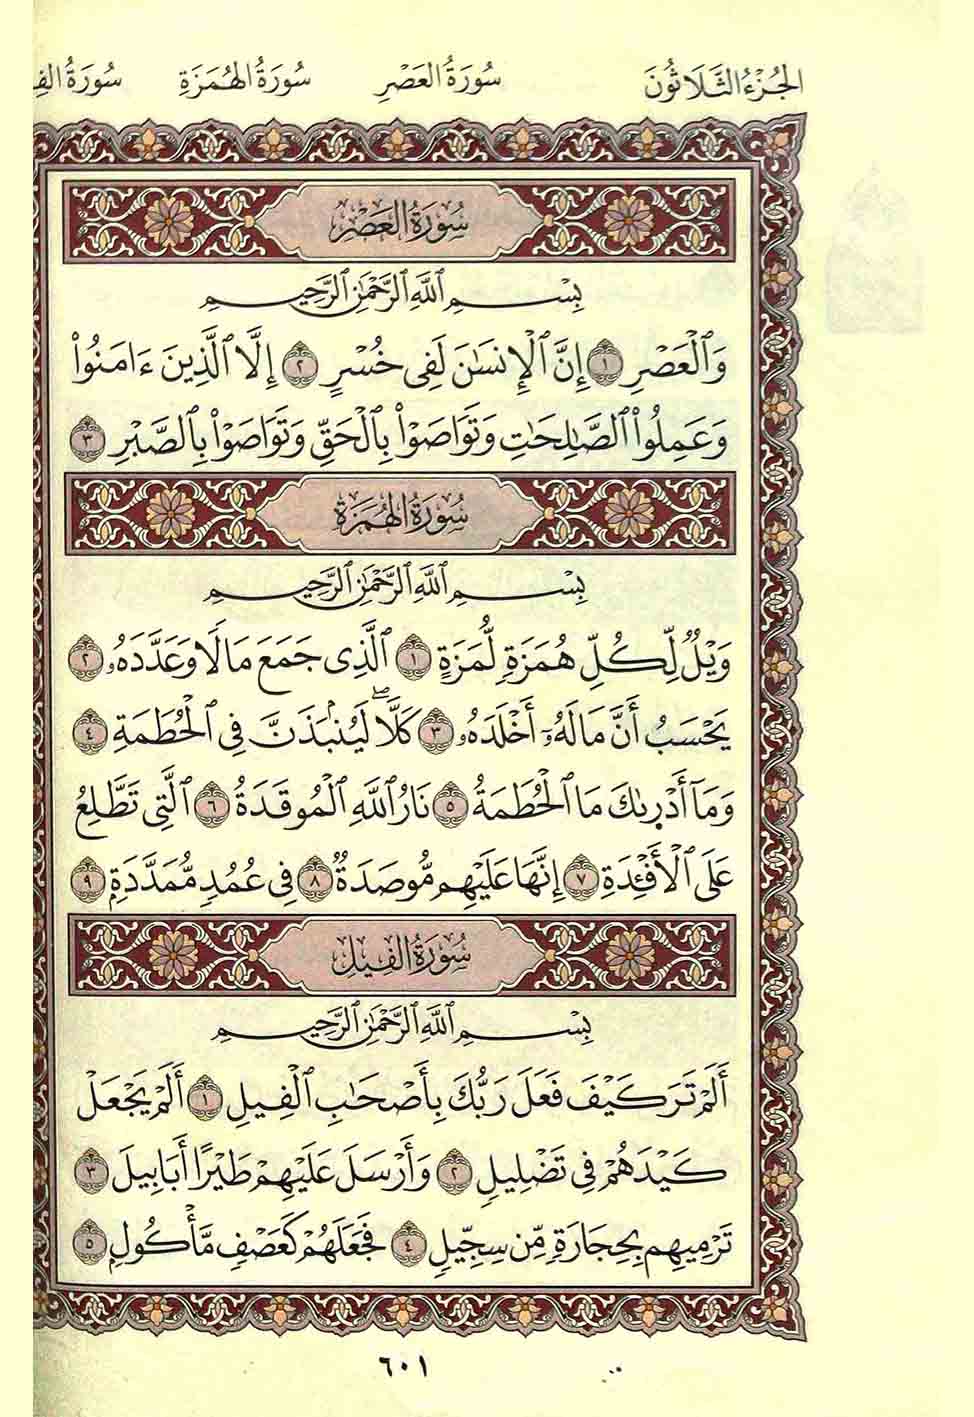 الجُزْءُ الثَّلَاثُونَ سُورَةُ العَصْرِ سُورَةُ الهُمَزَةِ سُورَةُ
سُورَةُ العَصْرِ
بِسْمِ ٱللَّهِ ٱلرَّحْمَٰنِ ٱلرَّحِيمِ
وَٱلْعَصْرِ ١ إِنَّ ٱلْإِنسَٰنَ لَفِى خُسْرٍ ٢ إِلَّا ٱلَّذِينَ ءَامَنُوا۟
وَعَمِلُوا۟ ٱلصَّٰلِحَٰتِ وَتَوَاصَوْا۟ بِٱلْحَقِّ وَتَوَاصَوْا۟ بِٱلصَّبْرِ ٣
سُورَةُ الهُمَزَةِ
بِسْمِ ٱللَّهِ ٱلرَّحْمَٰنِ ٱلرَّحِيمِ
وَيْلٌ لِّكُلِّ هُمَزَةٍ لُّمَزَةٍ ١ ٱلَّذِى جَمَعَ مَالًا وَعَدَّدَهُۥ ٢
يَحْسَبُ أَنَّ مَالَهُۥٓ أَخْلَدَهُۥ ٣ كَلَّاۖ لَيُنۢبَذَنَّ فِى ٱلْحُطَمَةِ ٤
وَمَآ أَدْرَىٰكَ مَا ٱلْحُطَمَةُ ٥ نَارُ ٱللَّهِ ٱلْمُوقَدَةُ ٦ ٱلَّتِى تَطَّلِعُ
عَلَى ٱلْأَفْـِٔدَةِ ٧ إِنَّهَا عَلَيْهِم مُّؤْصَدَةٌ ٨ فِى عَمَدٍ مُّمَدَّدَةٍۭ ٩
سُورَةُ الفِيلِ
بِسْمِ ٱللَّهِ ٱلرَّحْمَٰنِ ٱلرَّحِيمِ
أَلَمْ تَرَ كَيْفَ فَعَلَ رَبُّكَ بِأَصْحَٰبِ ٱلْفِيلِ ١ أَلَمْ يَجْعَلْ
كَيْدَهُمْ فِى تَضْلِيلٍ ٢ وَأَرْسَلَ عَلَيْهِمْ طَيْرًا أَبَابِيلَ ٣
تَرْمِيهِم بِحِجَارَةٍ مِّن سِجِّيلٍ ٤ فَجَعَلَهُمْ كَعَصْفٍ مَّأْكُولٍۭ ٥
٦٠١